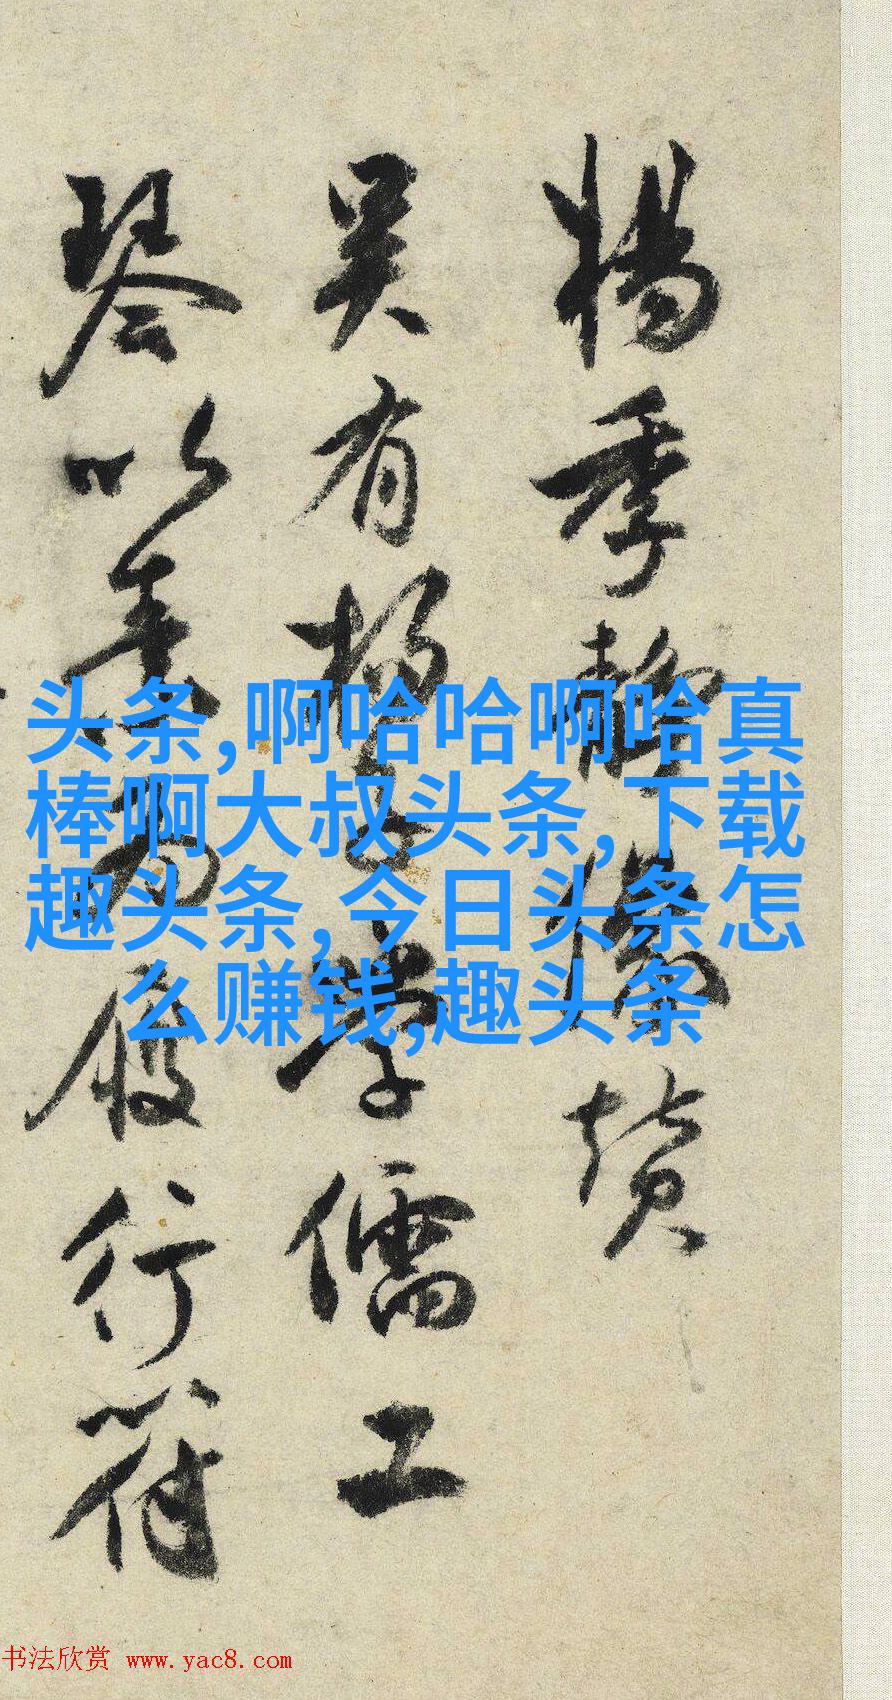 楊季靜像贊
吴有楊子學儒工
琴以為履行符
头条,啊哈哈啊哈真
棒啊大叔头条,下载
趣头条,今日头条怎
么赚钱,趣头条
书法欣赏 www.yac8.com